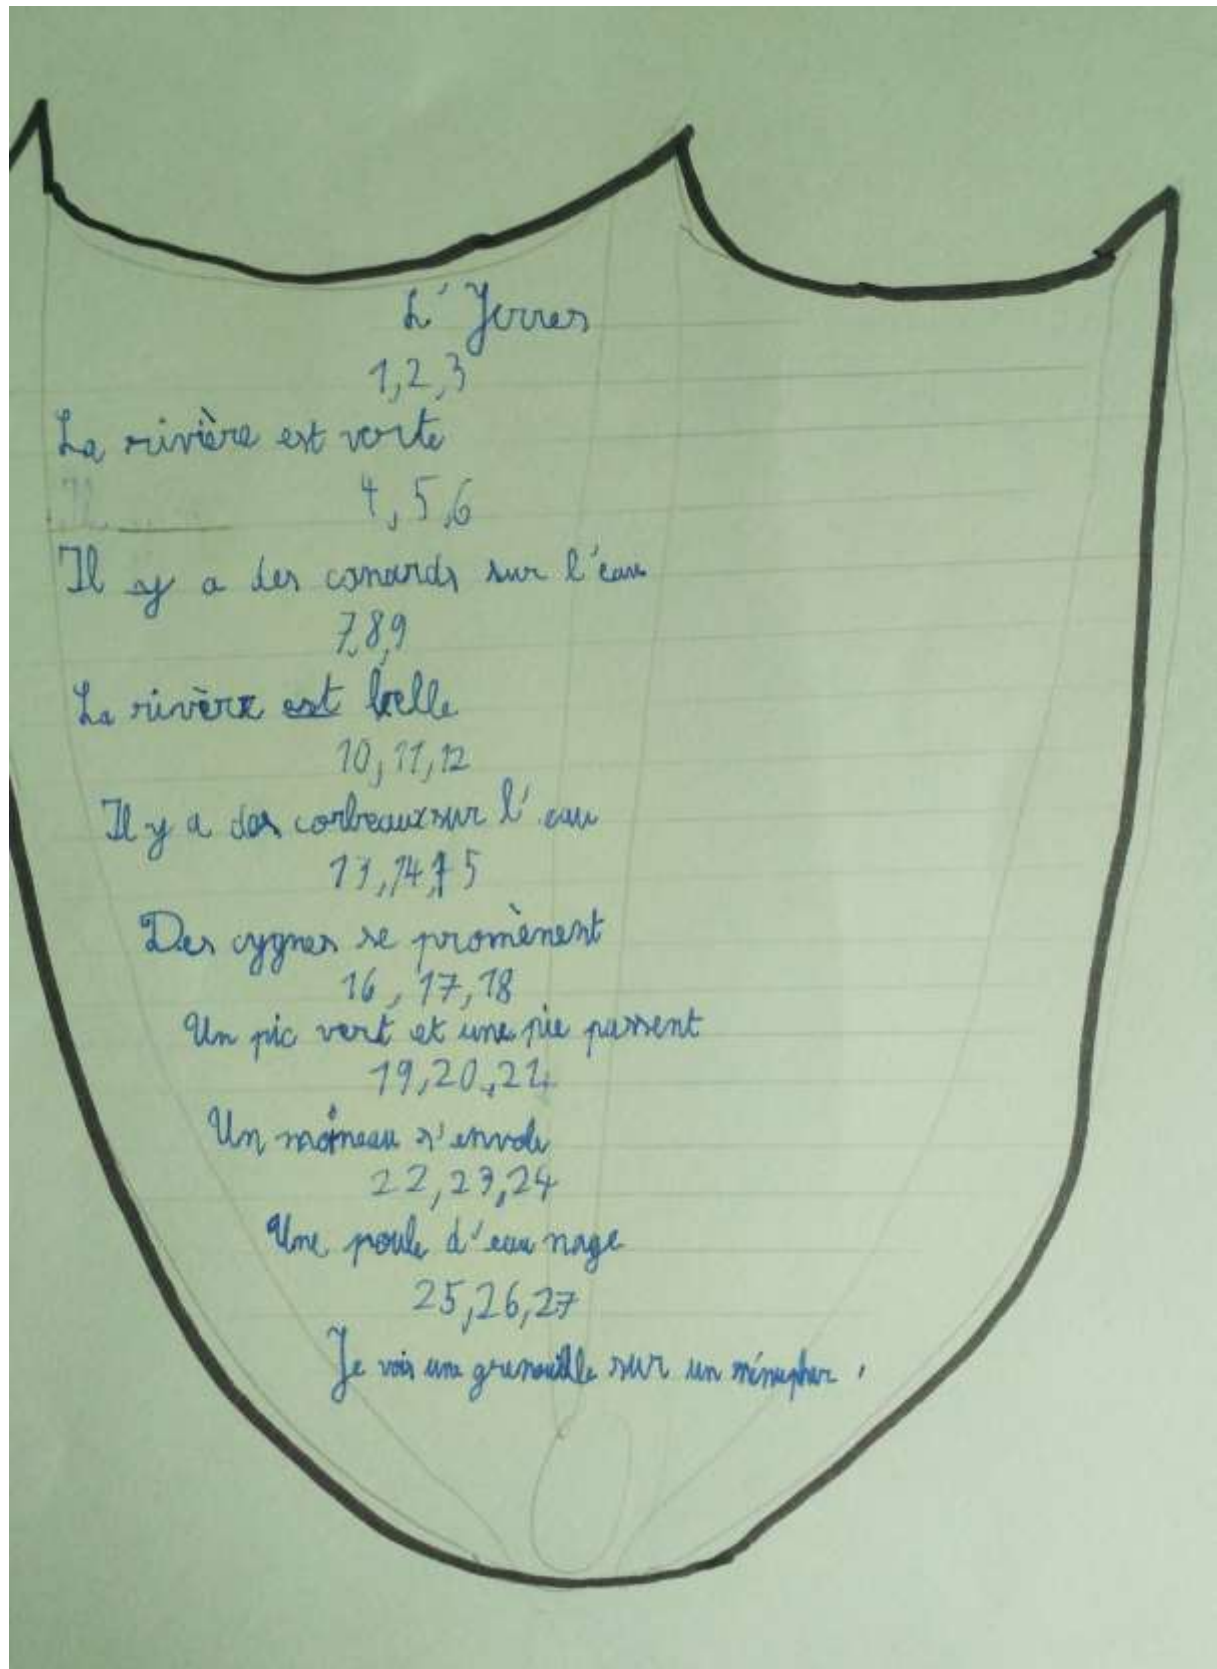 L'Yerres
1,2,3
La rivière est verte
4,5,6
Il y a des canards sur l'eau
7,8,9
La rivère est belle
10,11,12
Il y a des corbeaux sur l'eau
13,14,15
Des cygnes se promènent
16,17,18
Un pic vert et une pie passent
19,20,21
Un moineau s'envole
22,23,24
Une poule d'eau nage
25,26,27
Je vois une grenouille sur un nénuphar.